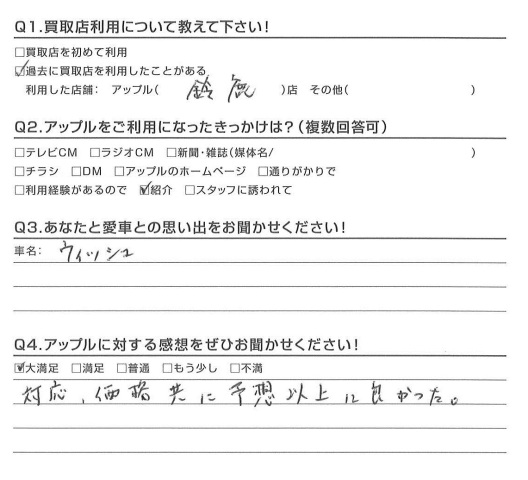 Q1.買取店利用について教えて下さい!
□買取店を初めて利用
☑過去に買取店を利用したことがある
利用した店舗: アップル( 鈴鹿 )店 その他( )
Q2.アップルをご利用になったきっかけは?(複数回答可)
□テレビCM □ラジオCM □新聞・雑誌(媒体名/ )
□チラシ □DM □アップルのホームページ □通りがかりで
□利用経験があるので ☑紹介 □スタッフに誘われて
Q3.あなたと愛車との思い出をお聞かせください!
車名: ウィッシュ
Q4.アップルに対する感想をぜひお聞かせください!
☑大満足 □満足 □普通 □もう少し □不満
対応、価格共に予想以上に良かった。